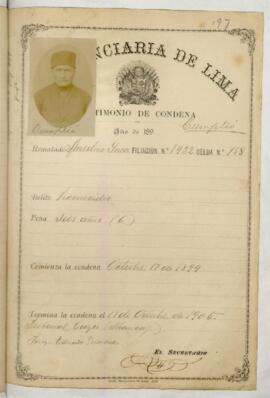 197
NCIARIA DE LIMA
TIMONIO DE CONDENA
Cumplió
Año de 189
Cumplió
Rematado Anselmo FILIACION N.º 1922 CELDA N.º 158
Delito Homicidio
Pena Seis años (6)
Comienza la condena Octubre 11 de 1899
Termina la condena el 11 de Octubre de 1905
Tribunal Cuzco
EL SECRETARIO